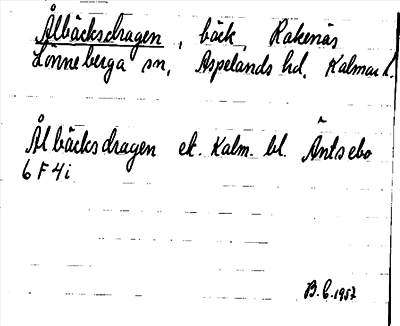 Ålbäcksdragen, bäck, Rakenäs
Lönneberga sn, Aspelands hd, Kalmar l.
Ålbäcksdragen ek. Kalm. bl. Äntsebo
6 F 4i
B.C. 1957